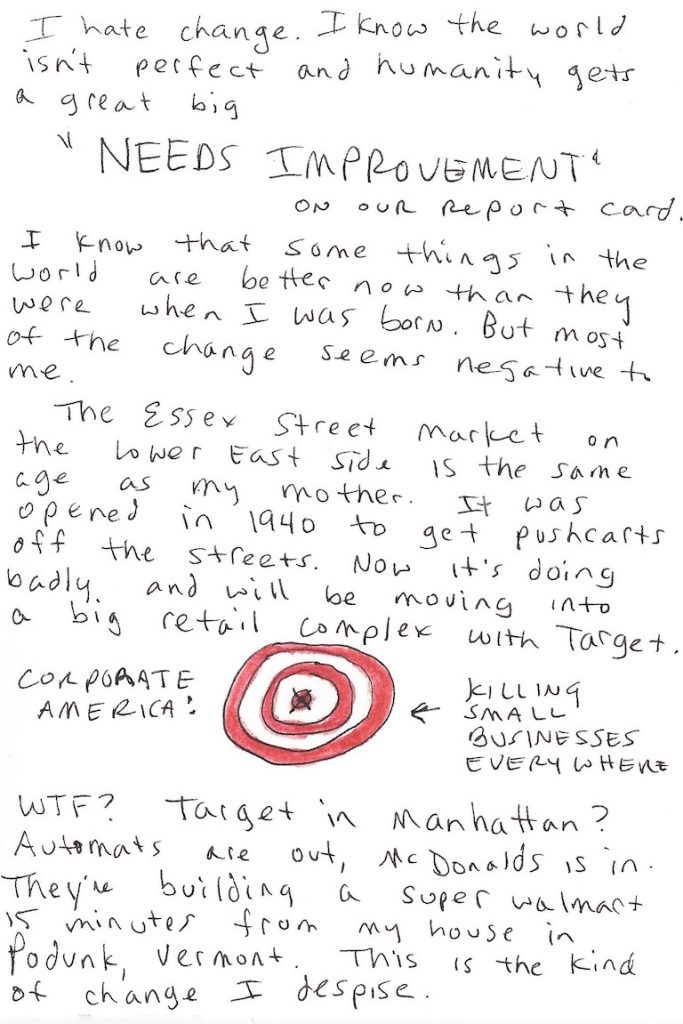 I hate change. I know the world
isn't perfect and humanity gets
a great big
"NEEDS IMPROVEMENT"
ON OUR REPORT CARD.
I know that some things in the
world are better now than they
were when I was born. But most
of the change seems negative to
me.
The Essex Street Market on
the Lower East Side is the same
age as my mother. It was
opened in 1940 to get pushcarts
off the streets. Now it's doing
badly. and will be moving into
a big retail complex with Target.
CORPORATE
AMERICA:
← KILLING
SMALL
BUSINESSES
EVERYWHERE
WTF? Target in Manhattan?
Automats are out, McDonalds is in.
They're building a super walmart
15 minutes from my house in
Podunk, Vermont. This is the kind
of change I despise.